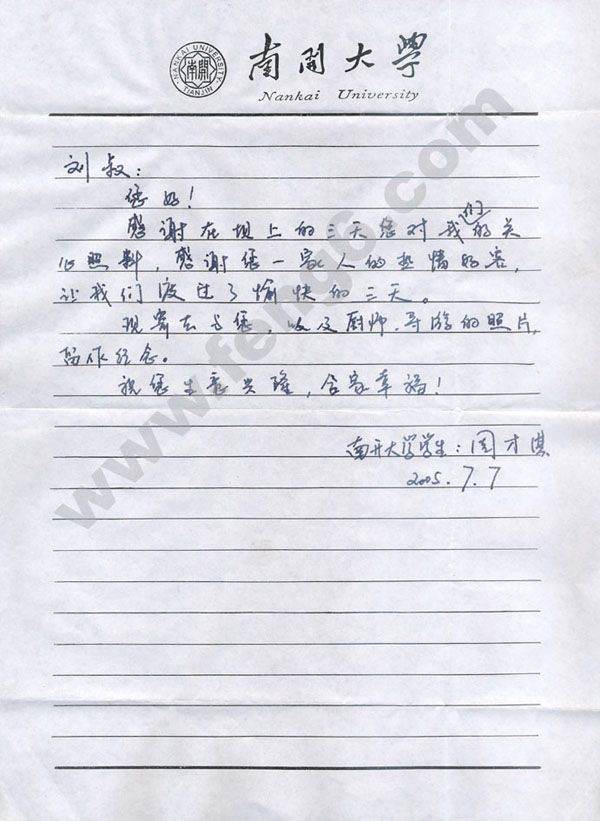 NANKAI UNIVERSITY
南開
TIANJIN
南開大學
Nankai University
刘叔:
您好!
感谢在坝上的三天您对我们的关
心照料,感谢您一家人的热情好客,
让我们渡过了愉快的三天。
现寄去与您,以及厨师、导游的照片,
留作纪念。
祝您生意兴隆,合家幸福!
南开大学学生:周才淇
2005.7.7
www.feng6.com